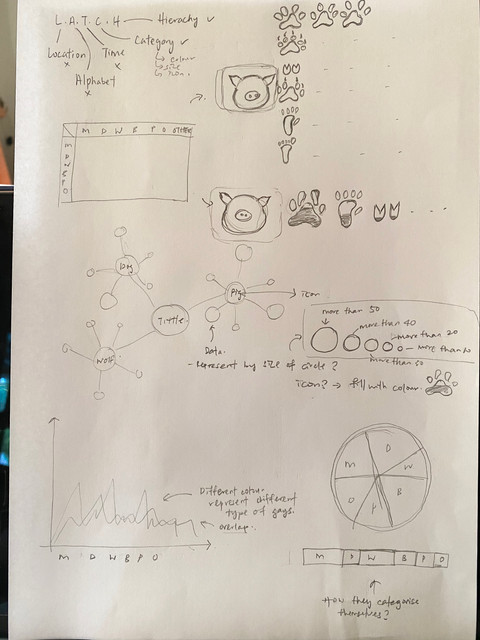 L.A.T.C.H
Hierachy ✓
Category ✓
→ colour
→ size
→ icon.
Location
×
Time
×
Alphabet
×
M D W B P O OTHER
M
D
W
B
P
O
Dog
Pig
Tittle
Wolf
→ icon
Data.
- Represent by size of circle?
more than 50
more than 40
more than 20
more than 10
more than 30
icon? → fill with colour.
Different colour
represent different
type of gays.
overlap.
M D W B P O
M
D
W
B
P
O
M D W B P O
How they categorise
themselves?